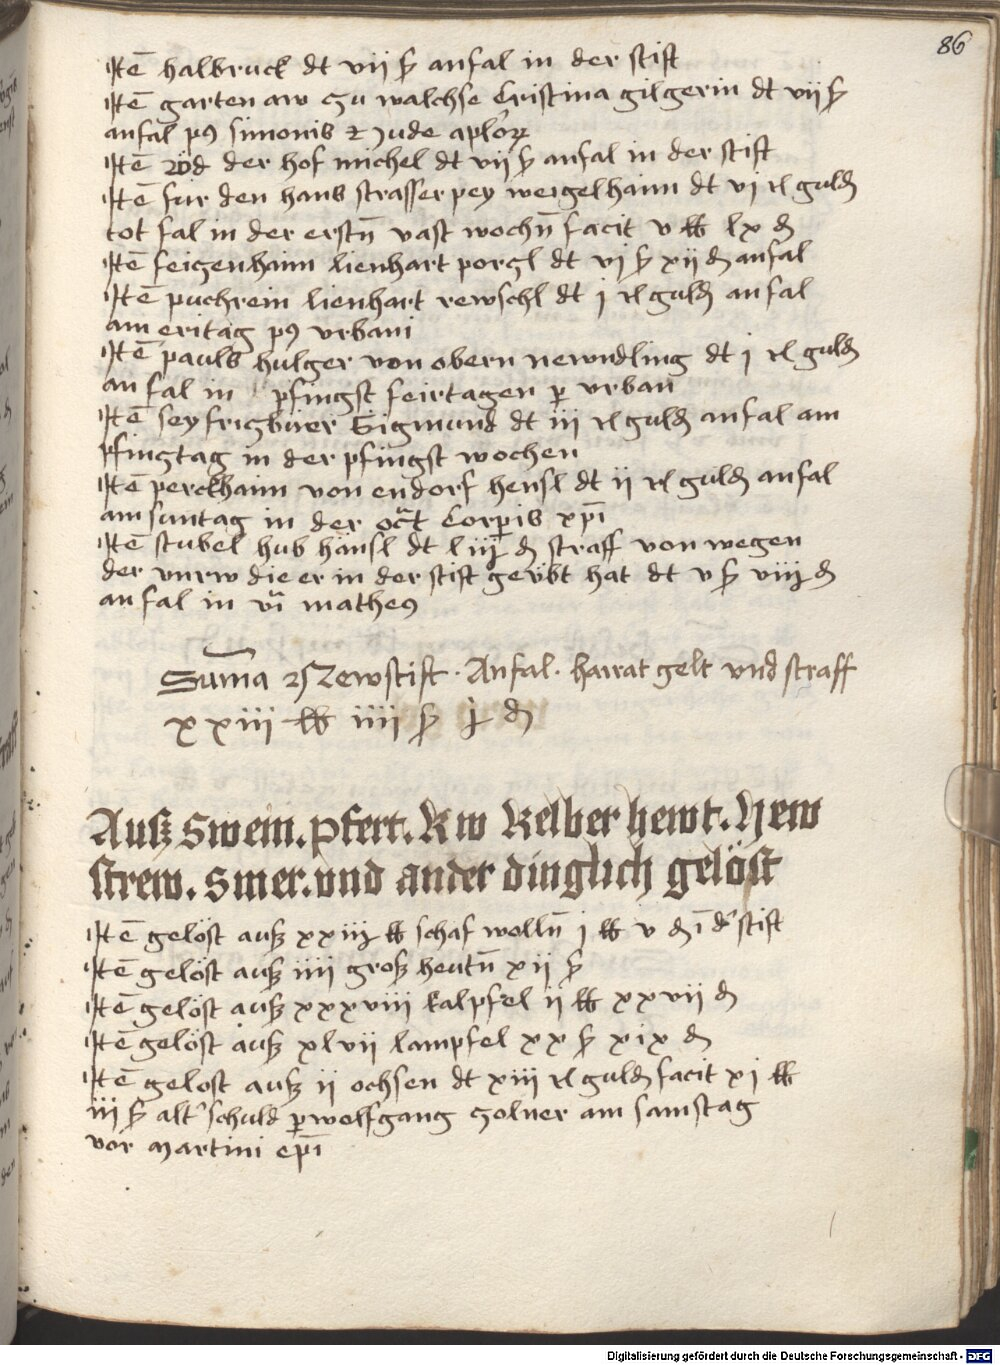 86
Itē halbruck dt vii ß anfal in der stift
Itē garten aw zu walchse Cristina gilgerin dt vii ß
anfal pꝯ simonis et Jude aplōꝝ
Itē röd der hof michel dt vii ß anfal in der stift
Itē für den hans strasser pey weigelhaim dt vi rl guld
tot fal in der erstn̄ vast wochn̄ facit v lb lx d
Itē feigenhaim lienhart porgl dt vi ß xii d anfal
Itē puchrein lienhart rewschl dt j rl guld anfal
am eritag pꝯ vrbani
Itē pauls hulger von obern newndling dt j rl guld
an fal in pfingst feirtagen ꝑ vrban
Itē seyfrigbürer Sigmund dt iii rl guld anfal am
pfingtag in der pfingst wochen
Itē perckhaim von endorf hensl dt ii rl guld anfal
am suntag in der oct̄ Corꝑis xp̄i
Itē stubel hub hänsl dt l iij d straff von wegen
der vnrw die er in der stift geübt hat dt v ß viij d
an fal in vī matheꝯ
Sūma Newstift · Anfal · harrat gelt vnd straff
xxiii lb iiii ß j d
Auß Swein . pfert . Kw Kelber hewt . Hew
strew . smer . vnd ander dinglich gelöst
Itē gelöst auß xxiij lb schaf wolln̄ j lb v d ī d' stift
Itē gelöst auß iiii groß heutn̄ xii ß
Itē gelöst auß xxxviii kalpfel ii lb xxvii d
Itē gelöst auß xlvii lampfel xx ß xix d
Itē gelost auß ii ochsen dt xiii rl guld facit xi lb
iii ß alt' schuld ꝑ wolfgang zolner am samstag
vor martini ep̄i
Digitalisierung gefördert durch die Deutsche Forschungsgemeinschaft - DFG